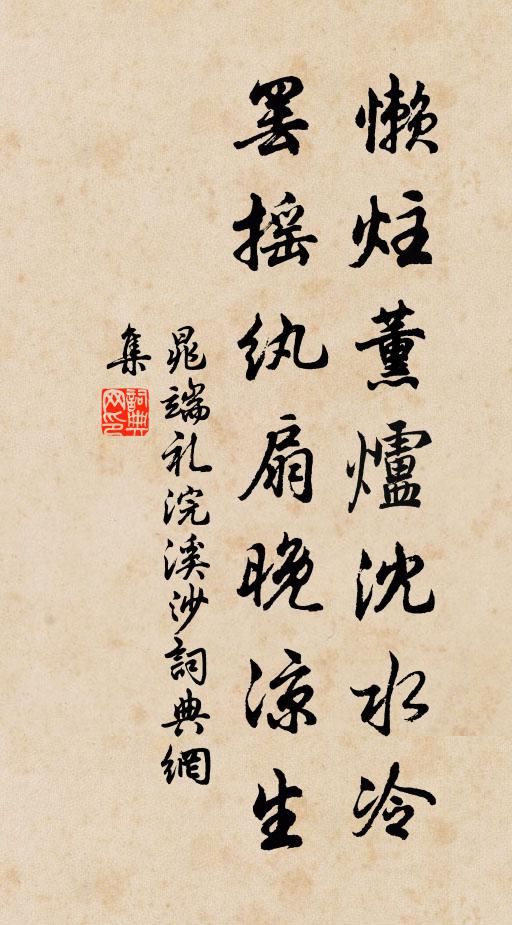 懶炷薰爐沈水冷
罷摇纨扇晚凉生
晁端礼浣溪沙詞典網
集
詞典网印